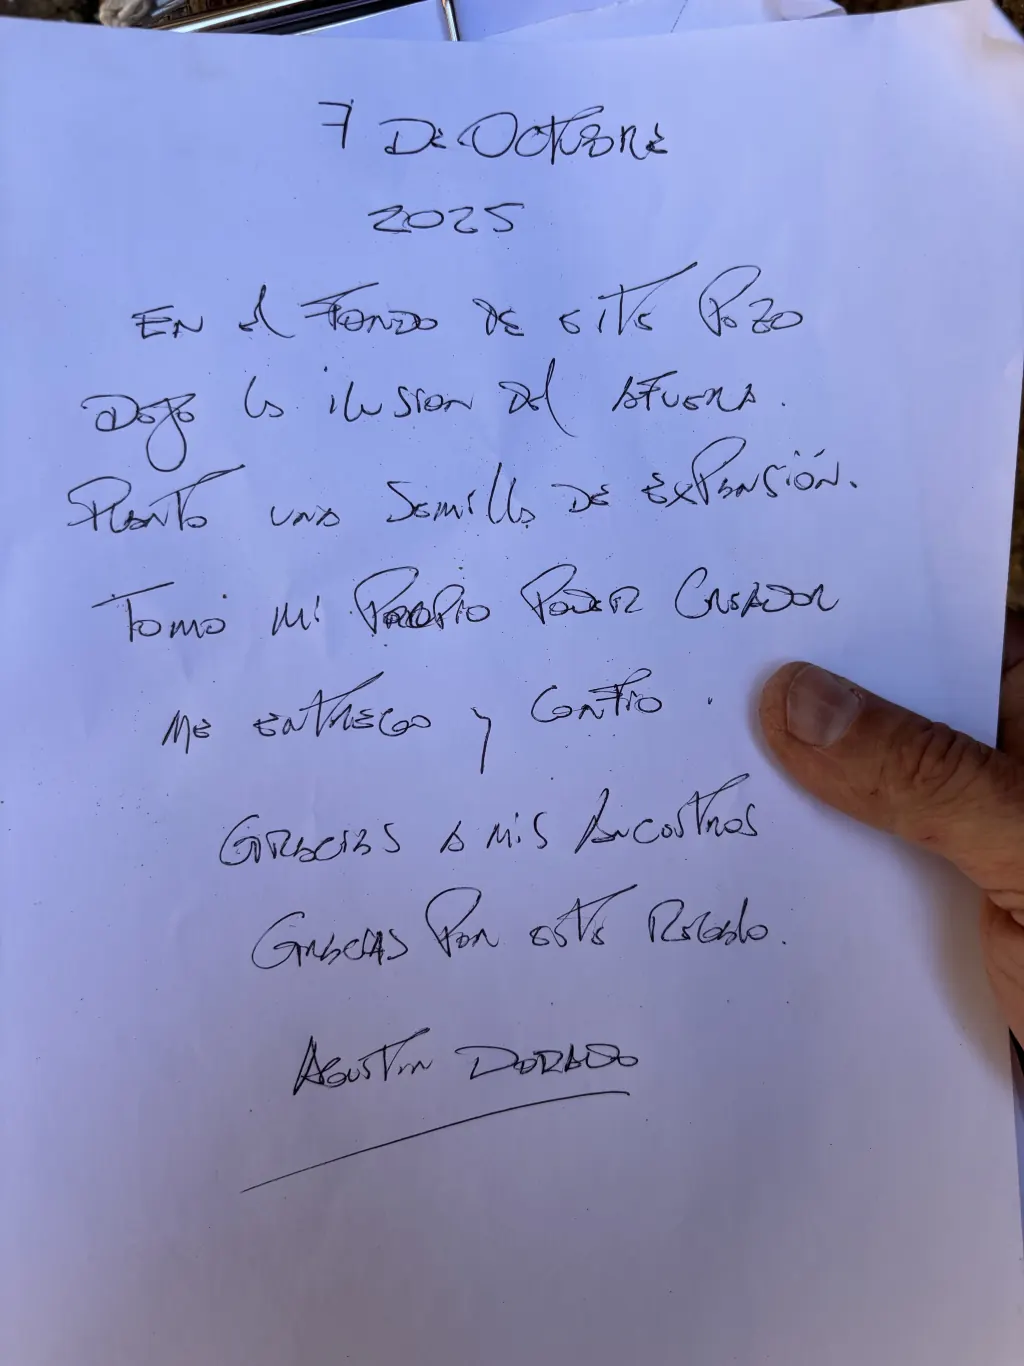 7 DE OCTUBRE
2025
EN el FONDO DE ESTE POZO
DEJO la ilusion del AFUERA.
Planto una Semilla DE EXPANSIÓN.
TOMO Mi PROPIO PODER CREADOR
ME ENTREGO y CONFIO.
GRACIAS A MIS ANCESTROS
GRACIAS POR ESTE REGALO.
AGUSTIN DORADO